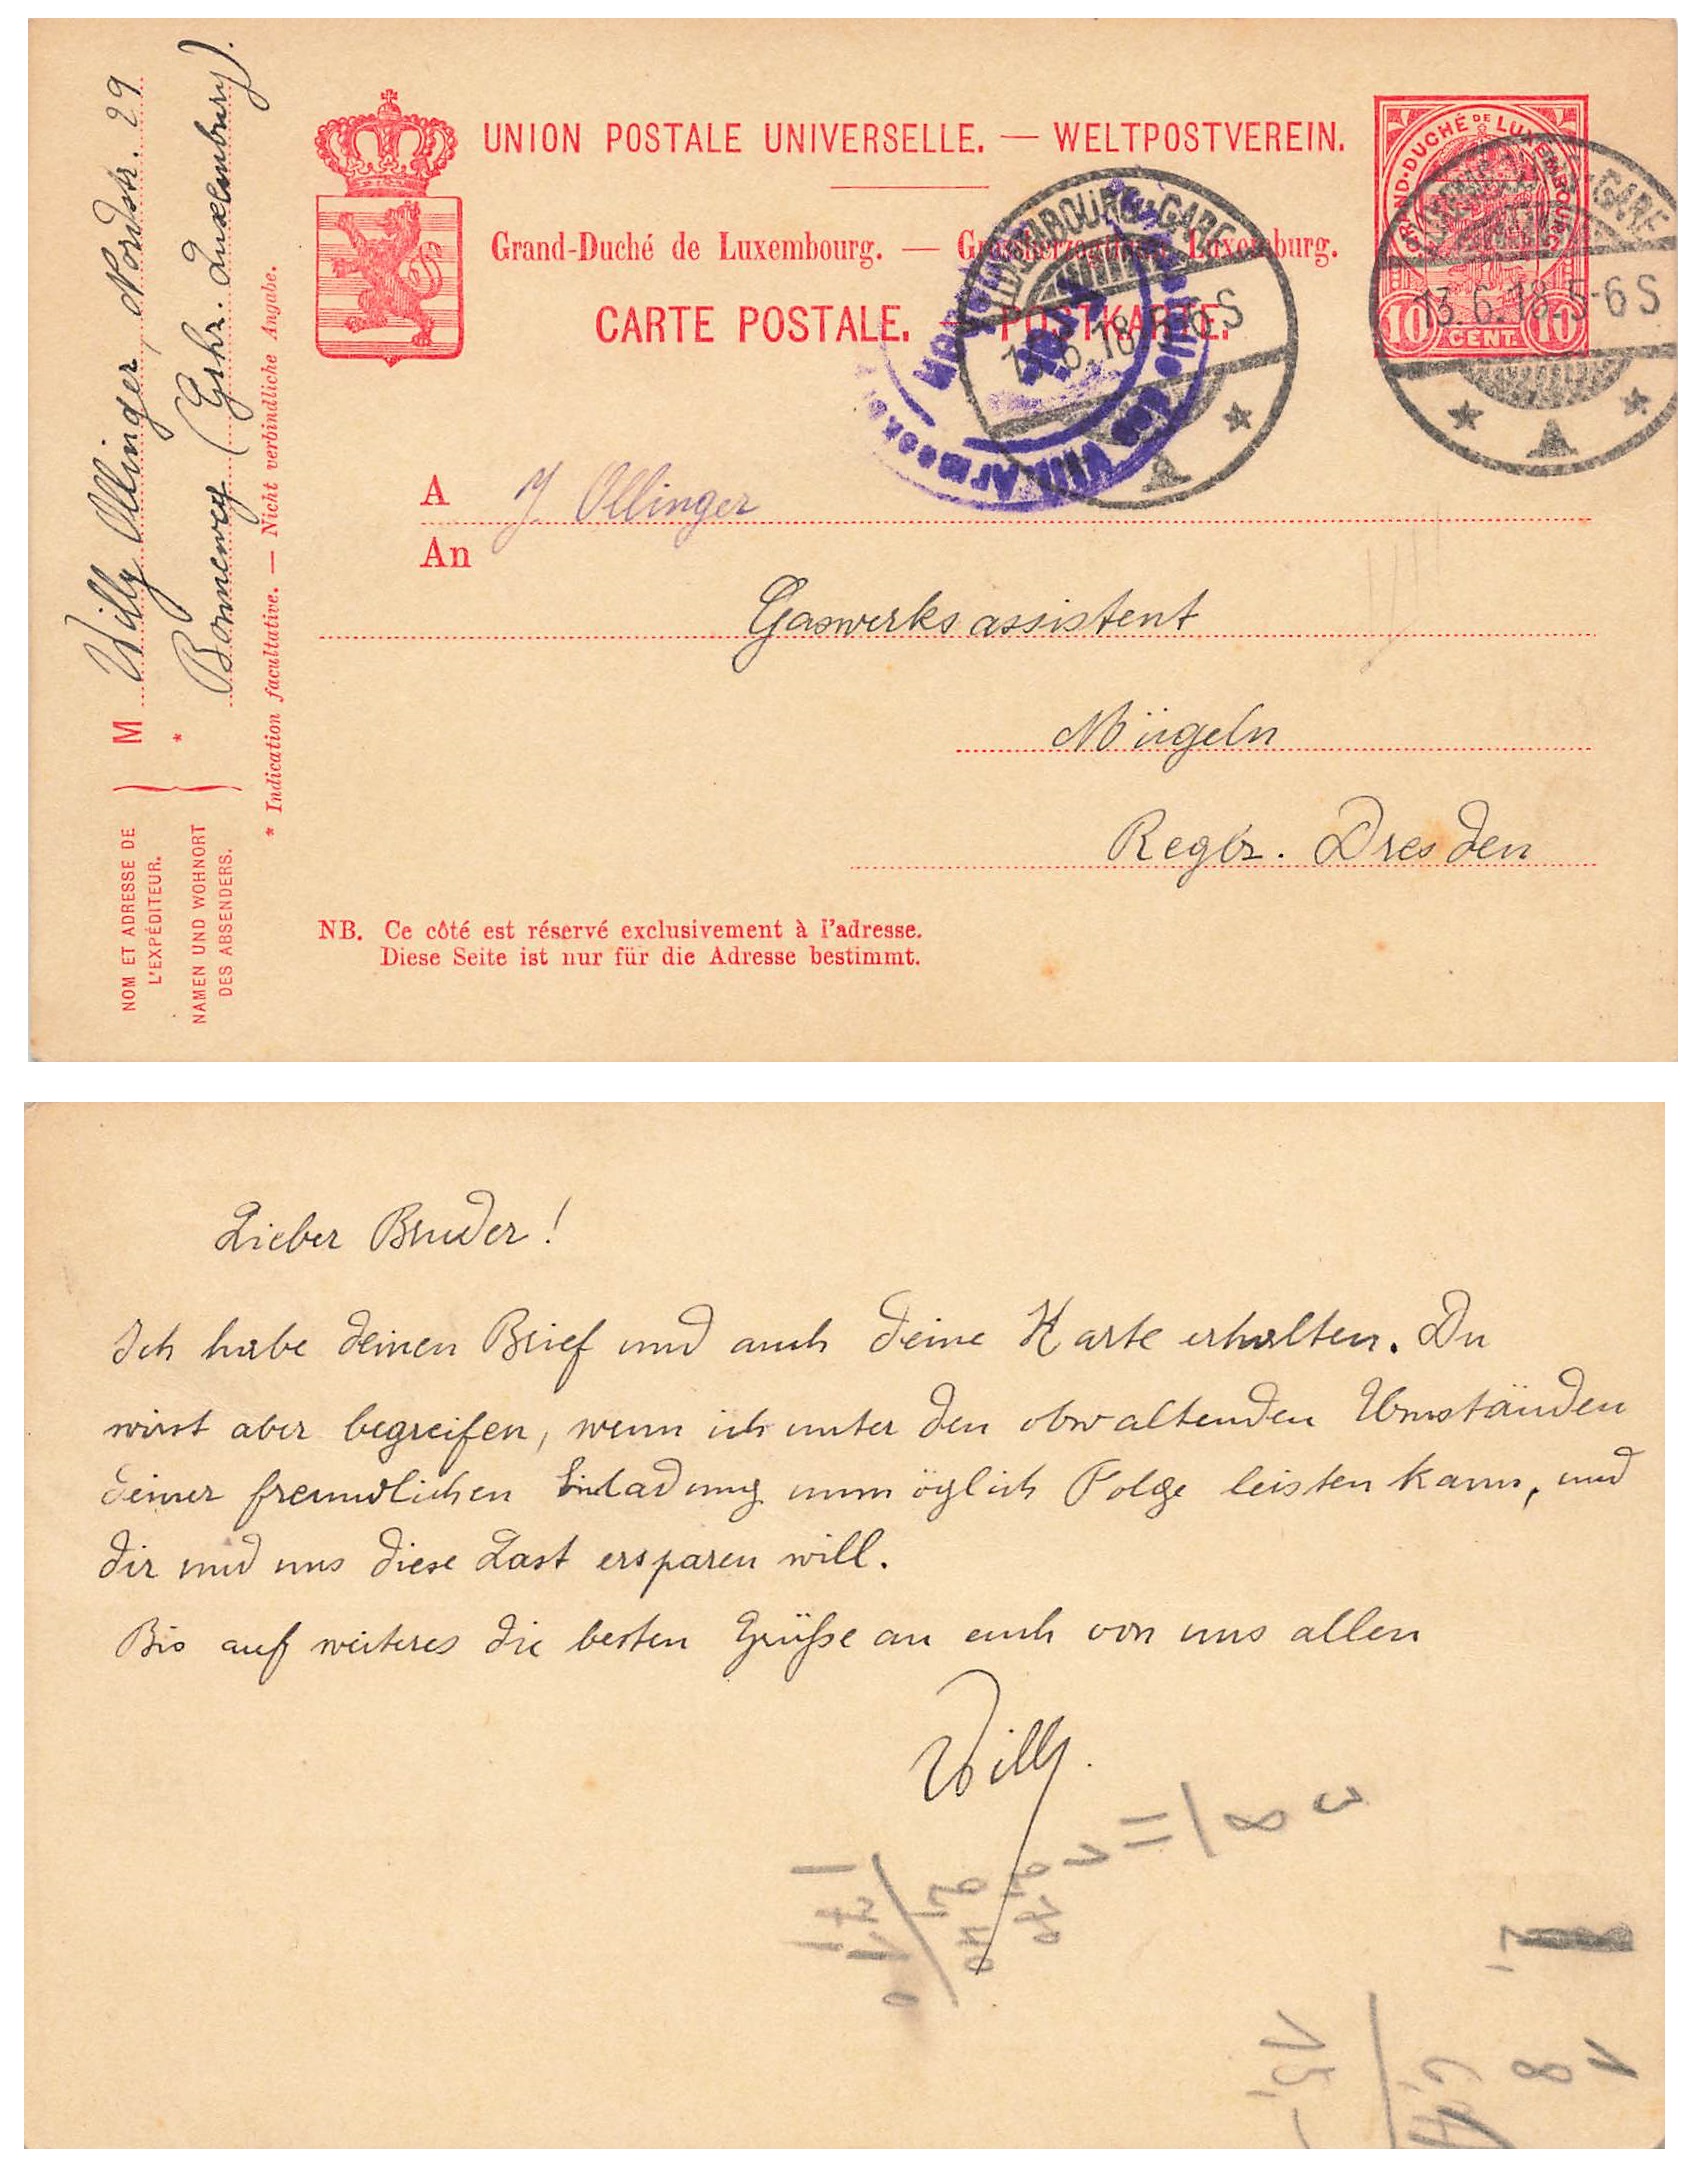 UNION POSTALE UNIVERSELLE. — WELTPOSTVEREIN.
Grand-Duché de Luxembourg. — Grossherzogthum Luxemburg.
CARTE POSTALE. — POSTKARTE.
GRAND-DUCHÉ DE LUXEMBOURG
10 CENT. 10
LUXEMBOURG-GARE
13.6.18.5-6 S
A
LUXEMBOURG-GARE
13.6.18.5-6 S
A
des VIII. Armeekorps
M Willy Ollinger, Nordstr. 29
* Bonneweg (Grhz. Luxemburg).
* Indication facultative. — Nicht verbindliche Angabe.
NOM ET ADRESSE DE
L'EXPÉDITEUR.
NAMEN UND WOHNORT
DES ABSENDERS.
A J. Ollinger
An
Gaswerksassistent
Mügeln
Regbz. Dresden
NB. Ce côté est réservé exclusivement à l'adresse.
Diese Seite ist nur für die Adresse bestimmt.
Lieber Bruder!
Ich habe deinen Brief und auch deine Karte erhalten. Du
wirst aber begreifen, wenn ich unter den obwaltenden Umständen
deiner freundlichen Einladung unmöglich Folge leisten kann, und
dir und uns diese Last ersparen will.
Bis auf weiteres die besten Grüße an euch von uns allen
Willy.